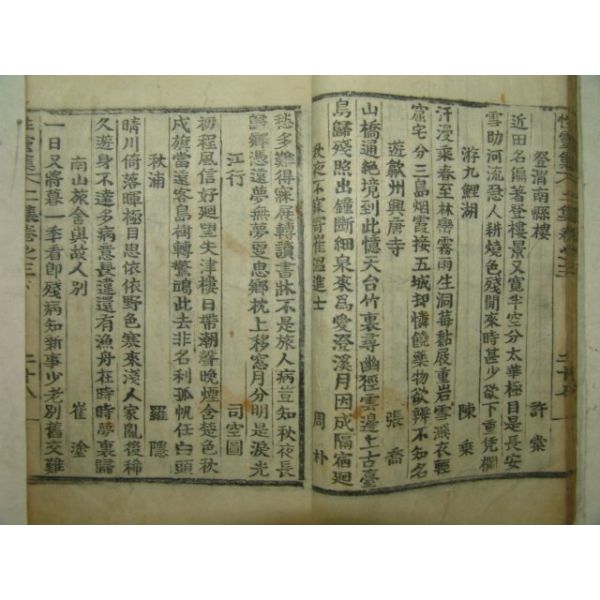 登渭南縣樓 許棠
近田名編著登樓景又寬半空分太華極目是長安
雪助河流急人耕燒色殘閒來時甚少欲下重凭欄
游九鯉湖 陳乗
汗漫乘春至林巒霧雨生洞莓黏屐重岩雪濺衣輕
窟宅分三島烟霞接五城却憐饒藥物欲辨不知名
遊歙州興唐寺 張喬
山橋通絶境到此憶天台竹裏尋幽徑雲邊上古臺
鳥歸殘照出鐘斷細泉來爲愛澄溪月因成隔宿廻
秋夜不寐寄崔溫進士 周朴
愁多難得寐展轉讀書牀不是旅人病豈知秋夜長
歸鄉憑遠夢無夢更思鄉枕上移窓月分明是淚光
江行 司空圖
初程風信好廻望失津樓日帶潮聲晚烟含楚色秋
戍旗當遠客島樹轉驚鷗此去非名利孤帆任白頭
秋浦 羅隱
晴川倚落暉極目思依依野色寒來淺人家亂後稀
久遊身不達多病意長違還有漁舟在時時夢裏歸
南山旅舍與故人別 崔塗
一日又將暮一季看卽殘病知新事少老別舊交難
性靈集 二集卷之三 二十八